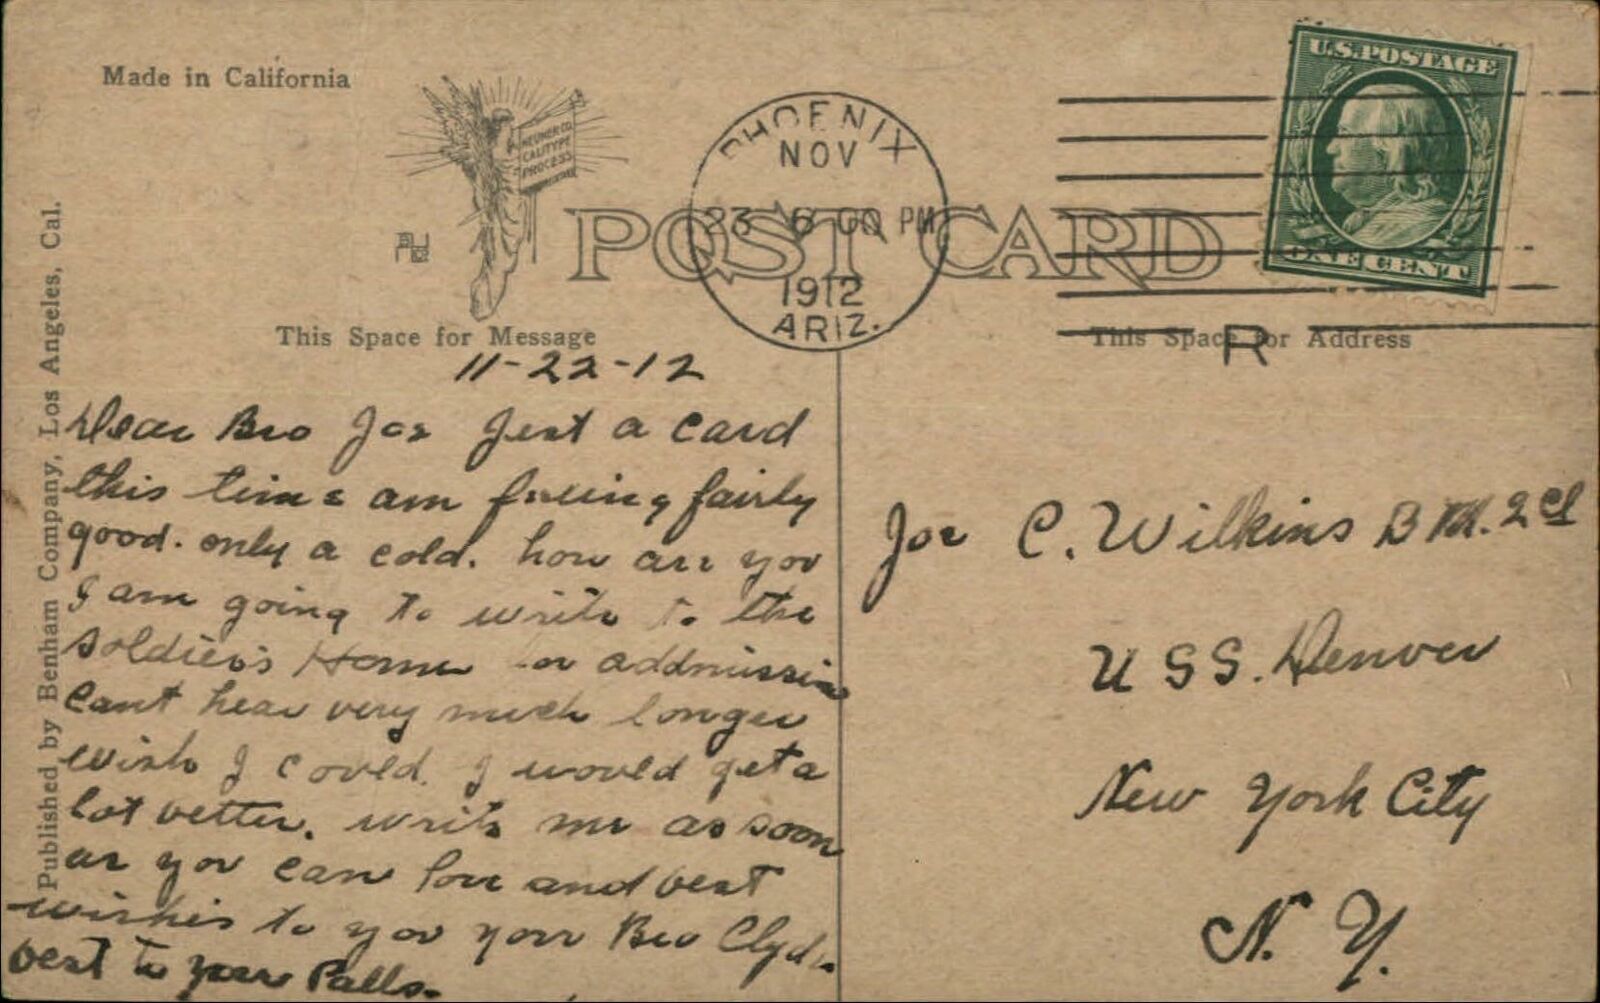 Made in California
NEUNER CO.
CAUTYPE
PROCESS
PHOENIX
NOV
23 6 00 PM
1912
ARIZ.
U.S. POSTAGE
ONE CENT
POST CARD
This Space for Message
This Space for Address
R
Published by Benham Company, Los Angeles, Cal.
11-22-12
Dear Bro Joe Jest a card
this time am feeling fairly
good. only a cold. how are you
I am going to write to the
soldier's Home for addmission
Cant hear very much longer
wish I could. I would get a
lot better. write me as soon
as you can love and best
wishes to you your Bro Clyde
best to your Palls.
Joe C. Wilkins B M. 2 cl
U S S. Denver
New York City
N. Y.